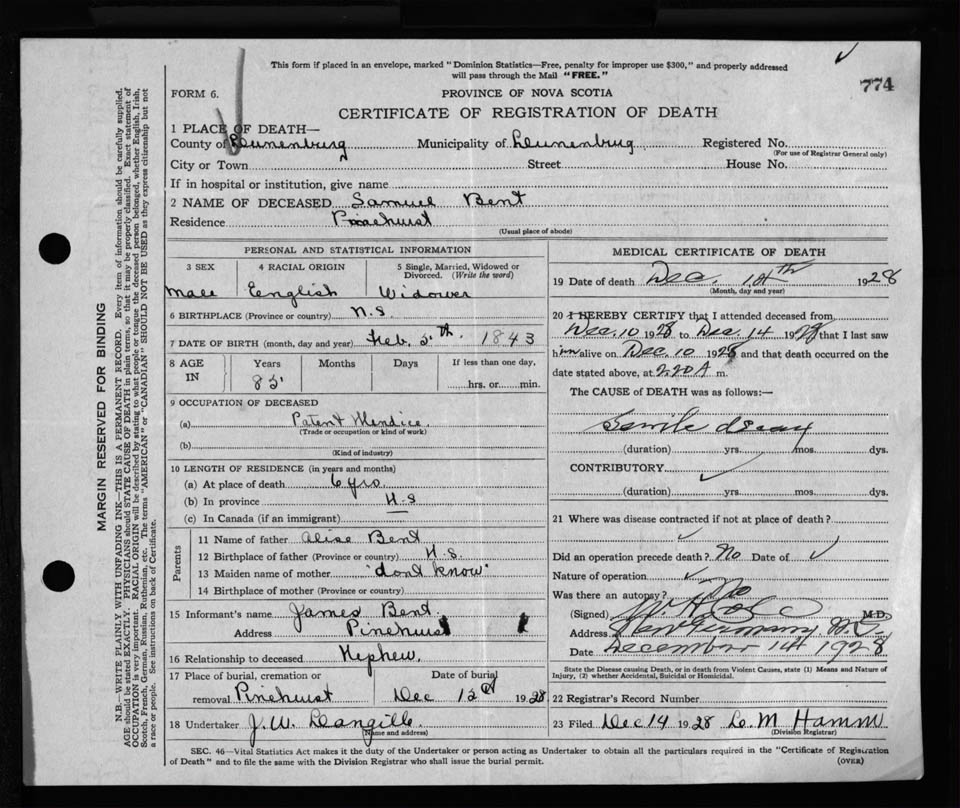 This form if placed in an envelope, marked "Dominion Statistics—Free, penalty for improper use $300," and properly addressed
will pass through the Mail "FREE."
774
FORM 6.
PROVINCE OF NOVA SCOTIA
CERTIFICATE OF REGISTRATION OF DEATH
1 PLACE OF DEATH—
County of Lunenburg Municipality of Lunenburg Registered No.
(For use of Registrar General only)
City or Town Street House No.
If in hospital or institution, give name
2 NAME OF DECEASED Samuel Bent
Residence Pinehurst
(Usual place of abode)
MARGIN RESERVED FOR BINDING
N.B.—WRITE PLAINLY WITH UNFADING INK—THIS IS A PERMANENT RECORD. Every item of information should be carefully supplied.
AGE should be stated EXACTLY. PHYSICIANS should STATE CAUSE OF DEATH in plain terms, so that it may be properly classified. Exact statement of
OCCUPATION is very important. RACIAL ORIGIN will be described by stating to what people or tongue the deceased person belonged, whether English, Irish,
Scotch, French, German, Russian, Ruthenian, etc. The terms "AMERICAN" or "CANADIAN" SHOULD NOT BE USED as they express citizenship but not
a race or people. See instructions on back of Certificate.
PERSONAL AND STATISTICAL INFORMATION
3 SEX 4 RACIAL ORIGIN 5 Single, Married, Widowed or
Divorced. (Write the word)
Male English Widower
6 BIRTHPLACE (Province or country) N.S.
7 DATE OF BIRTH (month, day and year) Feb. 5th. 1843
8 AGE IN Years Months Days If less than one day,
85 hrs. or min.
9 OCCUPATION OF DECEASED
(a) Patent
(Trade or occupation or kind of work)
(b)
(Kind of industry)
10 LENGTH OF RESIDENCE (in years and months)
(a) At place of death 6 yrs
(b) In province N.S
(c) In Canada (if an immigrant)
Parents
11 Name of father Bent
12 Birthplace of father (Province or country) N.S.
13 Maiden name of mother "dont know"
14 Birthplace of mother (Province or country)
15 Informant's name James Bent.
Address Pinehurst
16 Relationship to deceased Nephew.
17 Place of burial, cremation or Date of burial
removal Pinehurst Dec 1928
18 Undertaker J. W.
(Name and address)
MEDICAL CERTIFICATE OF DEATH
19 Date of death Dec. 14th 1928
(Month, day and year)
20 I HEREBY CERTIFY that I attended deceased from
Dec. 10 1928 to Dec. 14 1928 that I last saw
him alive on Dec 10 1928 and that death occurred on the
date stated above, at 2.20 A m.
The CAUSE OF DEATH was as follows:—
Senile decay
(duration) yrs. mos. dys.
CONTRIBUTORY
(duration) yrs. mos. dys.
21 Where was disease contracted if not at place of death?
Did an operation precede death? No Date of
Nature of operation
Was there an autopsy? No
(Signed) M.D.
Address N.S.
Date December 14 1928
State the Disease causing Death, or in death from Violent Causes, state (1) Means and Nature of
Injury, (2) whether Accidental, Suicidal or Homicidal.
22 Registrar's Record Number
23 Filed Dec 14 1928 M Hamm
(Division Registrar)
SEC. 46—Vital Statistics Act makes it the duty of the Undertaker or person acting as Undertaker to obtain all the particulars required in the "Certificate of Registration
of Death" and to file the same with the Division Registrar who shall issue the burial permit.
(OVER)